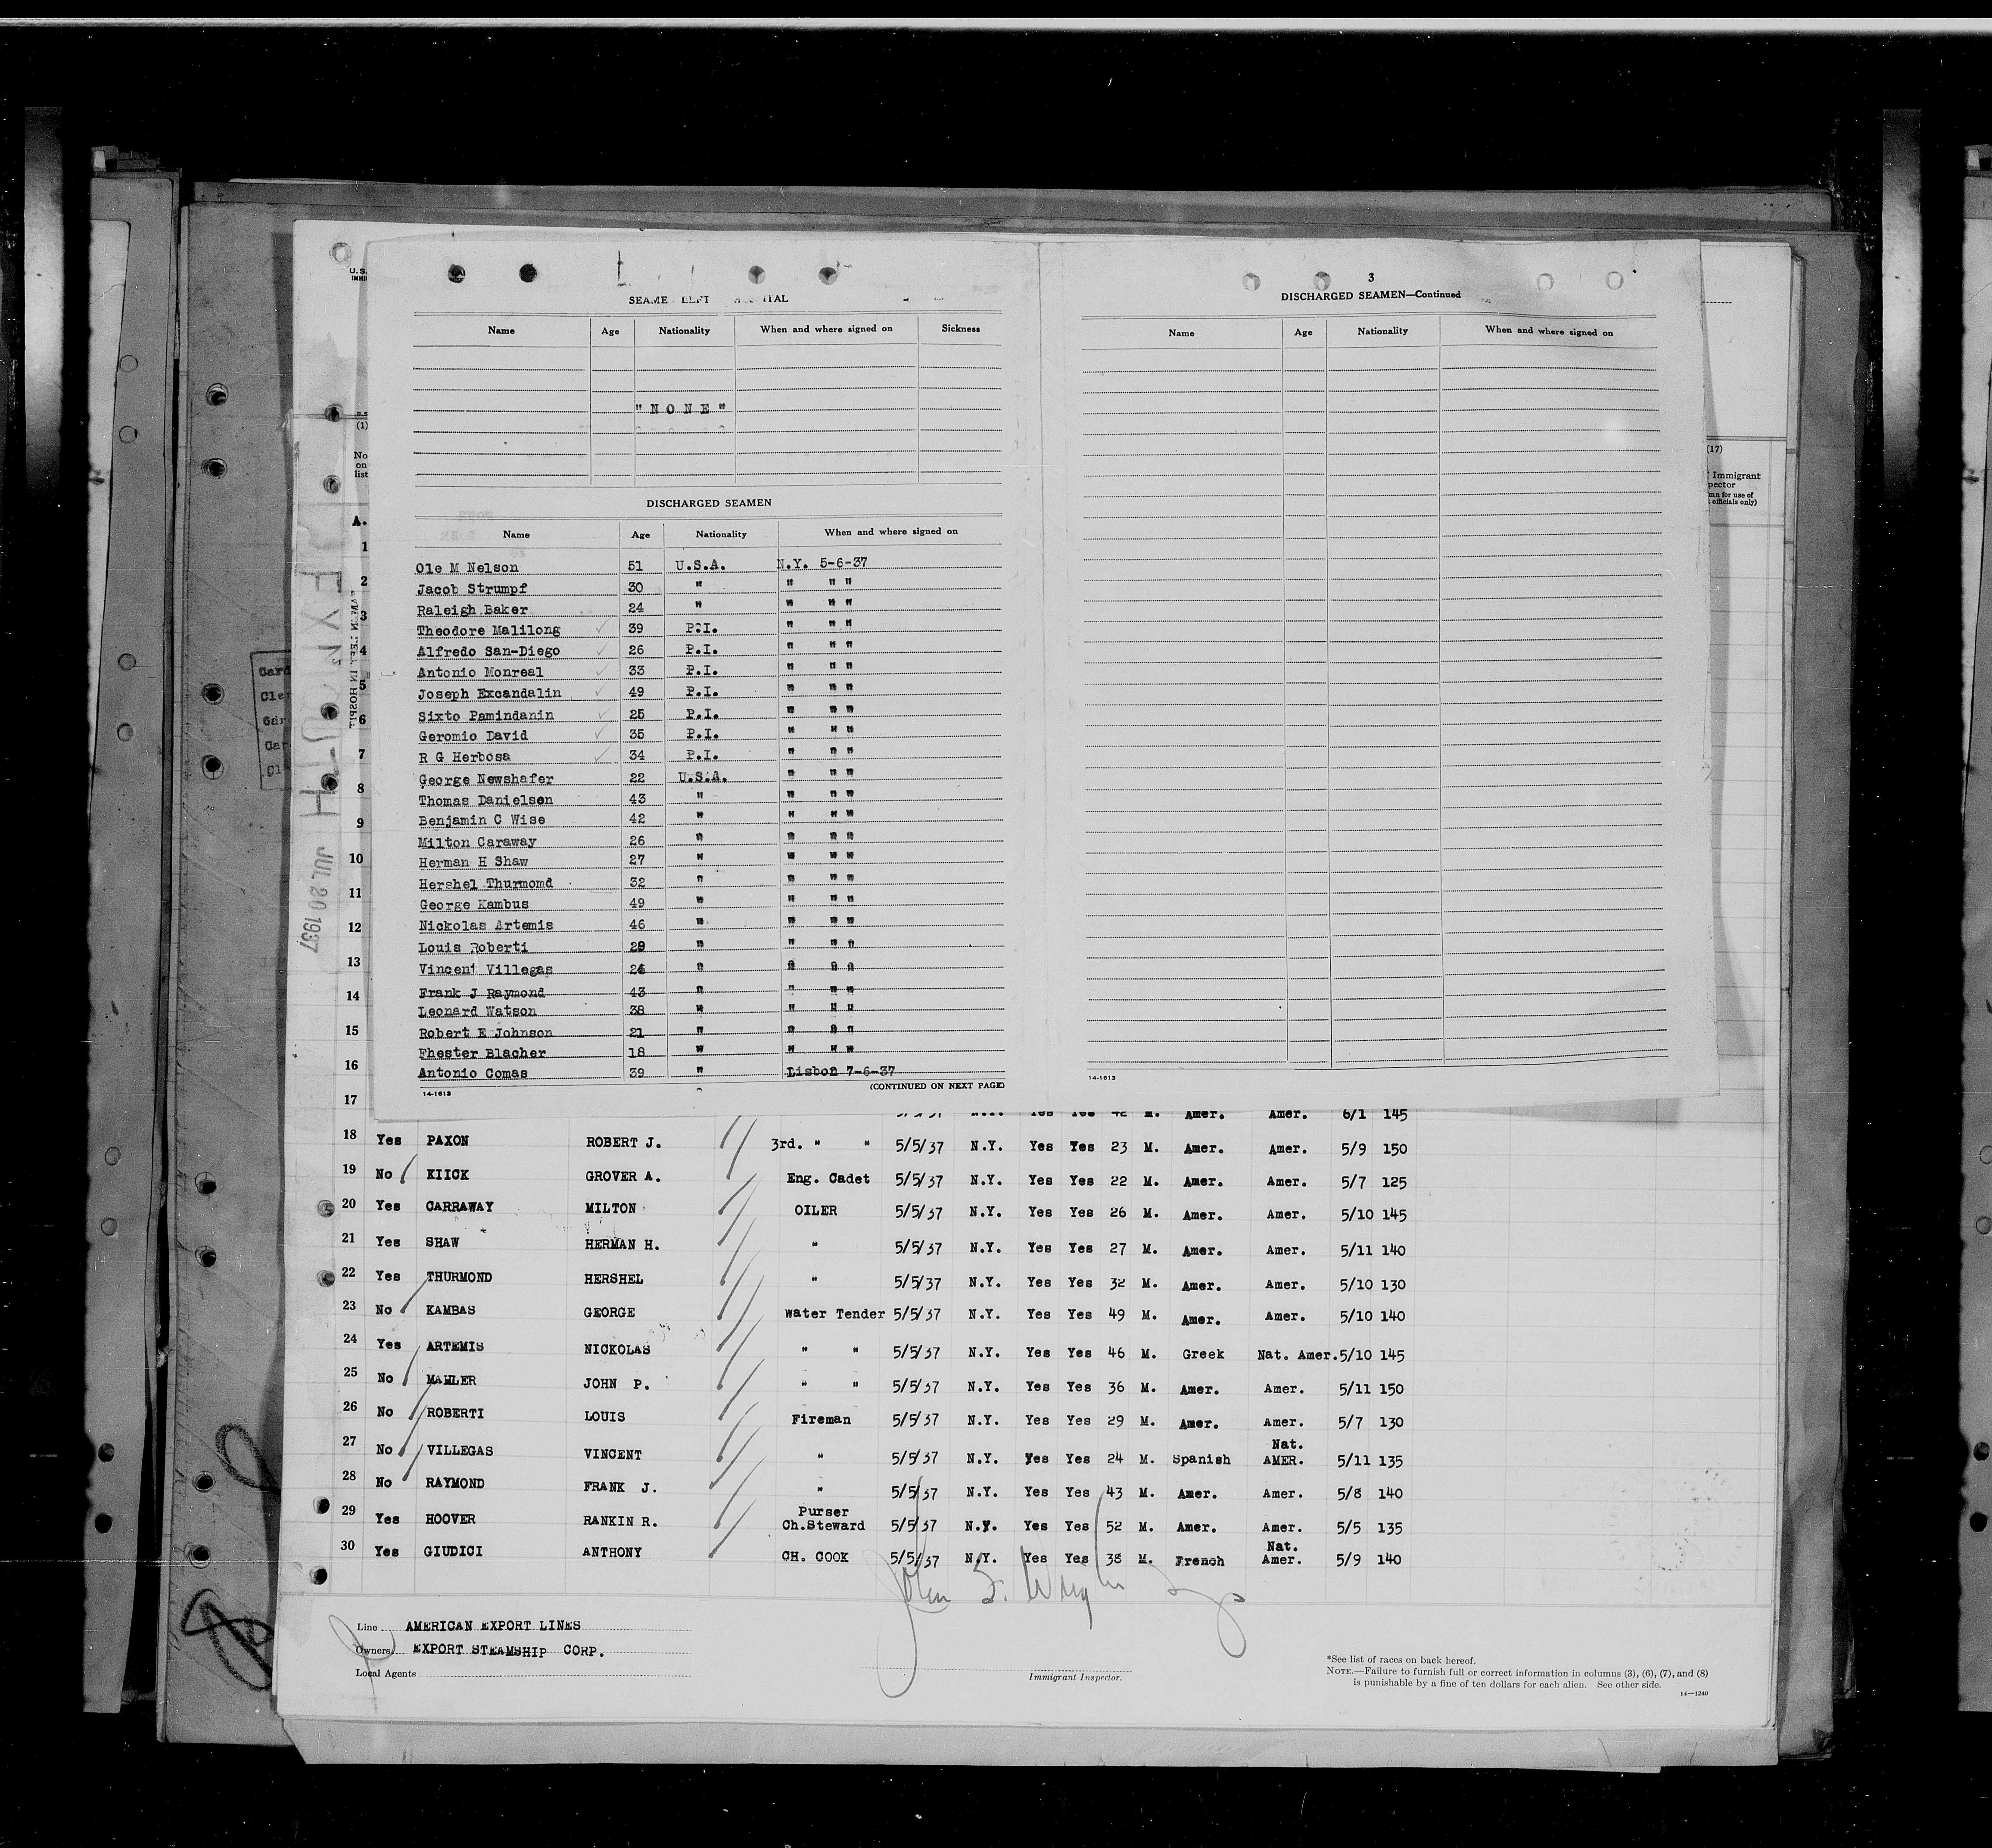 SEAME LEFT ITAL
Name Age Nationality When and where signed on Sickness
"NONE"
DISCHARGED SEAMEN
Name Age Nationality When and where signed on
Ole M Nelson 51 U.S.A. N.Y. 5-6-37
Jacob Strumpf 30 " " " "
Raleigh Baker 24 " " " "
Theodore Malilong 39 P.I. " " "
Alfredo San-Diego 26 P.I. " " "
Antonio Monreal 33 P.I. " " "
Joseph Excandalin 49 P.I. " " "
Sixto Pamindanin 25 P.I. " " "
Geromio David 35 P.I. " " "
R G Herbosa 34 P.I. " " "
George Newshafer 22 U.S.A. " " "
Thomas Danielson 43 " " " "
Benjamin C Wise 42 " " " "
Milton Caraway 26 " " " "
Herman H Shaw 27 " " " "
Hershel Thurmomd 32 " " " "
George Kambus 49 " " " "
Nickolas Artemis 46 " " " "
Louis Roberti 29 " " " "
Vincent Villegas 24 " " " "
Frank J Raymond 43 " " " "
Leonard Watson 38 " " " "
Robert E Johnson 21 " " " "
Fhester Blacher 18 " " " "
Antonio Comas 39 " Lisbon 7-6-37
14-1613 (CONTINUED ON NEXT PAGE)
3
DISCHARGED SEAMEN—Continued
Name Age Nationality When and where signed on
14-1613
U.S.
(1)
No
on
list
A.
1
2
3
4
5
6
7
8
9
10
11
12
13
14
15
16
17
EXMOUTH
JUL 20 1937
(17)
Immigrant
pector
mn for use of
officials only)
Yes Yes 42 M. Amer. Amer. 6/1 145
18 Yes PAXON ROBERT J. 3rd. " " 5/5/37 N.Y. Yes Yes 23 M. Amer. Amer. 5/9 150
19 No KIICK GROVER A. Eng. Cadet 5/5/37 N.Y. Yes Yes 22 M. Amer. Amer. 5/7 125
20 Yes CARRAWAY MILTON OILER 5/5/37 N.Y. Yes Yes 26 M. Amer. Amer. 5/10 145
21 Yes SHAW HERMAN H. " 5/5/37 N.Y. Yes Yes 27 M. Amer. Amer. 5/11 140
22 Yes THURMOND HERSHEL " 5/5/37 N.Y. Yes Yes 32 M. Amer. Amer. 5/10 130
23 No KAMBAS GEORGE Water Tender 5/5/37 N.Y. Yes Yes 49 M. Amer. Amer. 5/10 140
24 Yes ARTEMIS NICKOLAS " " 5/5/37 N.Y. Yes Yes 46 M. Greek Nat. Amer. 5/10 145
25 No MAHLER JOHN P. " " 5/5/37 N.Y. Yes Yes 36 M. Amer. Amer. 5/11 150
26 No ROBERTI LOUIS Fireman 5/5/37 N.Y. Yes Yes 29 M. Amer. Amer. 5/7 130
27 No VILLEGAS VINCENT " 5/5/37 N.Y. Yes Yes 24 M. Spanish Nat. AMER. 5/11 135
28 No RAYMOND FRANK J. " 5/5/37 Yes Yes 43 M. Amer. Amer. 5/8 140
29 Yes HOOVER RANKIN R. Purser Ch.Steward 5/5/37 N.Y. Yes Yes 52 M. Amer. Amer. 5/5 135
30 Yes GIUDICI ANTHONY CH. COOK 5/5/37 N.Y. Yes Yes 38 M. French Nat. Amer. 5/9 140
Line AMERICAN EXPORT LINES
Owners EXPORT STEAMSHIP CORP.
Local Agents
Immigrant Inspector.
*See list of races on back hereof.
NOTE.—Failure to furnish full or correct information in columns (3), (6), (7), and (8)
is punishable by a fine of ten dollars for each alien. See other side.
14—1240